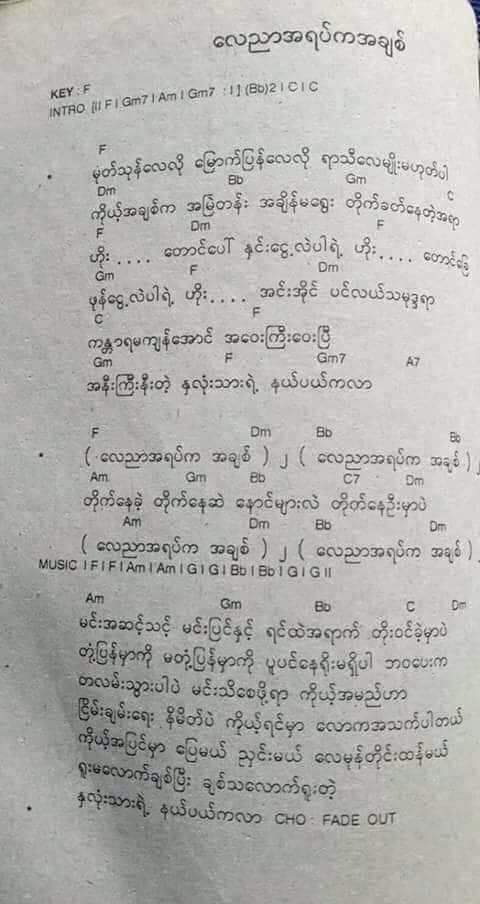 လေညာအရပ်ကအချစ်
KEY : F
INTRO {II F I Gm7 I Am I Gm7 : I ] (Bb)2 I C I C
F
မုတ်သုန်လေလို မြောက်ပြန်လေလို ရာသီလေမျိုးမဟုတ်ပါ
Dm Bb Gm C
ကိုယ့်အချစ်က အမြဲတန်း အချိန်မရွေး တိုက်ခတ်နေတဲ့အရာ
F Dm F
ဟိုး . . . . တောင်ပေါ် နှင်းငွေ့လဲပါရဲ့ ဟိုး . . . . တောင်ခြေ
Gm F Dm
ဖုန်ငွေ့လဲပါရဲ့ ဟိုး . . . . အင်းအိုင် ပင်လယ်သမုဒ္ဒရာ
C F
ကန္တာရမကျန်အောင် အဝေးကြီးဝေးပြီ
Gm F Gm7 A7
အနီးကြီးနီးတဲ့ နှလုံးသားရဲ့ နယ်ပယ်ကလာ
F Dm Bb Bb
( လေညာအရပ်က အချစ် ) ၂ ( လေညာအရပ်က အချစ် ) ၂
Am Gm Bb C7 Dm
တိုက်နေခဲ့ တိုက်နေဆဲ နောင်များလဲ တိုက်နေဦးမှာပဲ
Am Dm Bb Dm
( လေညာအရပ်က အချစ် ) ၂ ( လေညာအရပ်က အချစ် )
MUSIC I F I F I Am I Am I G I G I Bb I Bb I G I G II
Am Gm Bb C Dm
မင်းအဆင့်သင့် မင်းပြင်နှင့် ရင်ထဲအရောက် တိုးဝင်ခဲ့မှာပဲ
တုံ့ပြန်မှာကို မတုံ့ပြန်မှာကို ပူပင်နေရိုးမရှိပါ ဘဝပေးက
တလမ်းသွားပါပဲ မင်းသိစေဖို့ရာ ကိုယ့်အမည်ဟာ
ငြိမ်းချမ်းရေး နိမိတ်ပဲ ကိုယ့်ရင်မှာ လောကအသက်ပါတယ်
ကိုယ့်အပြင်မှာ ပြေမယ် ညှင်းမယ် လေမုန်တိုင်းထန်မယ်
ရူးမလောက်ချစ်ပြီး ချစ်သလောက်ရူးတဲ့
နှလုံးသားရဲ့ နယ်ပယ်ကလာ CHO : FADE OUT